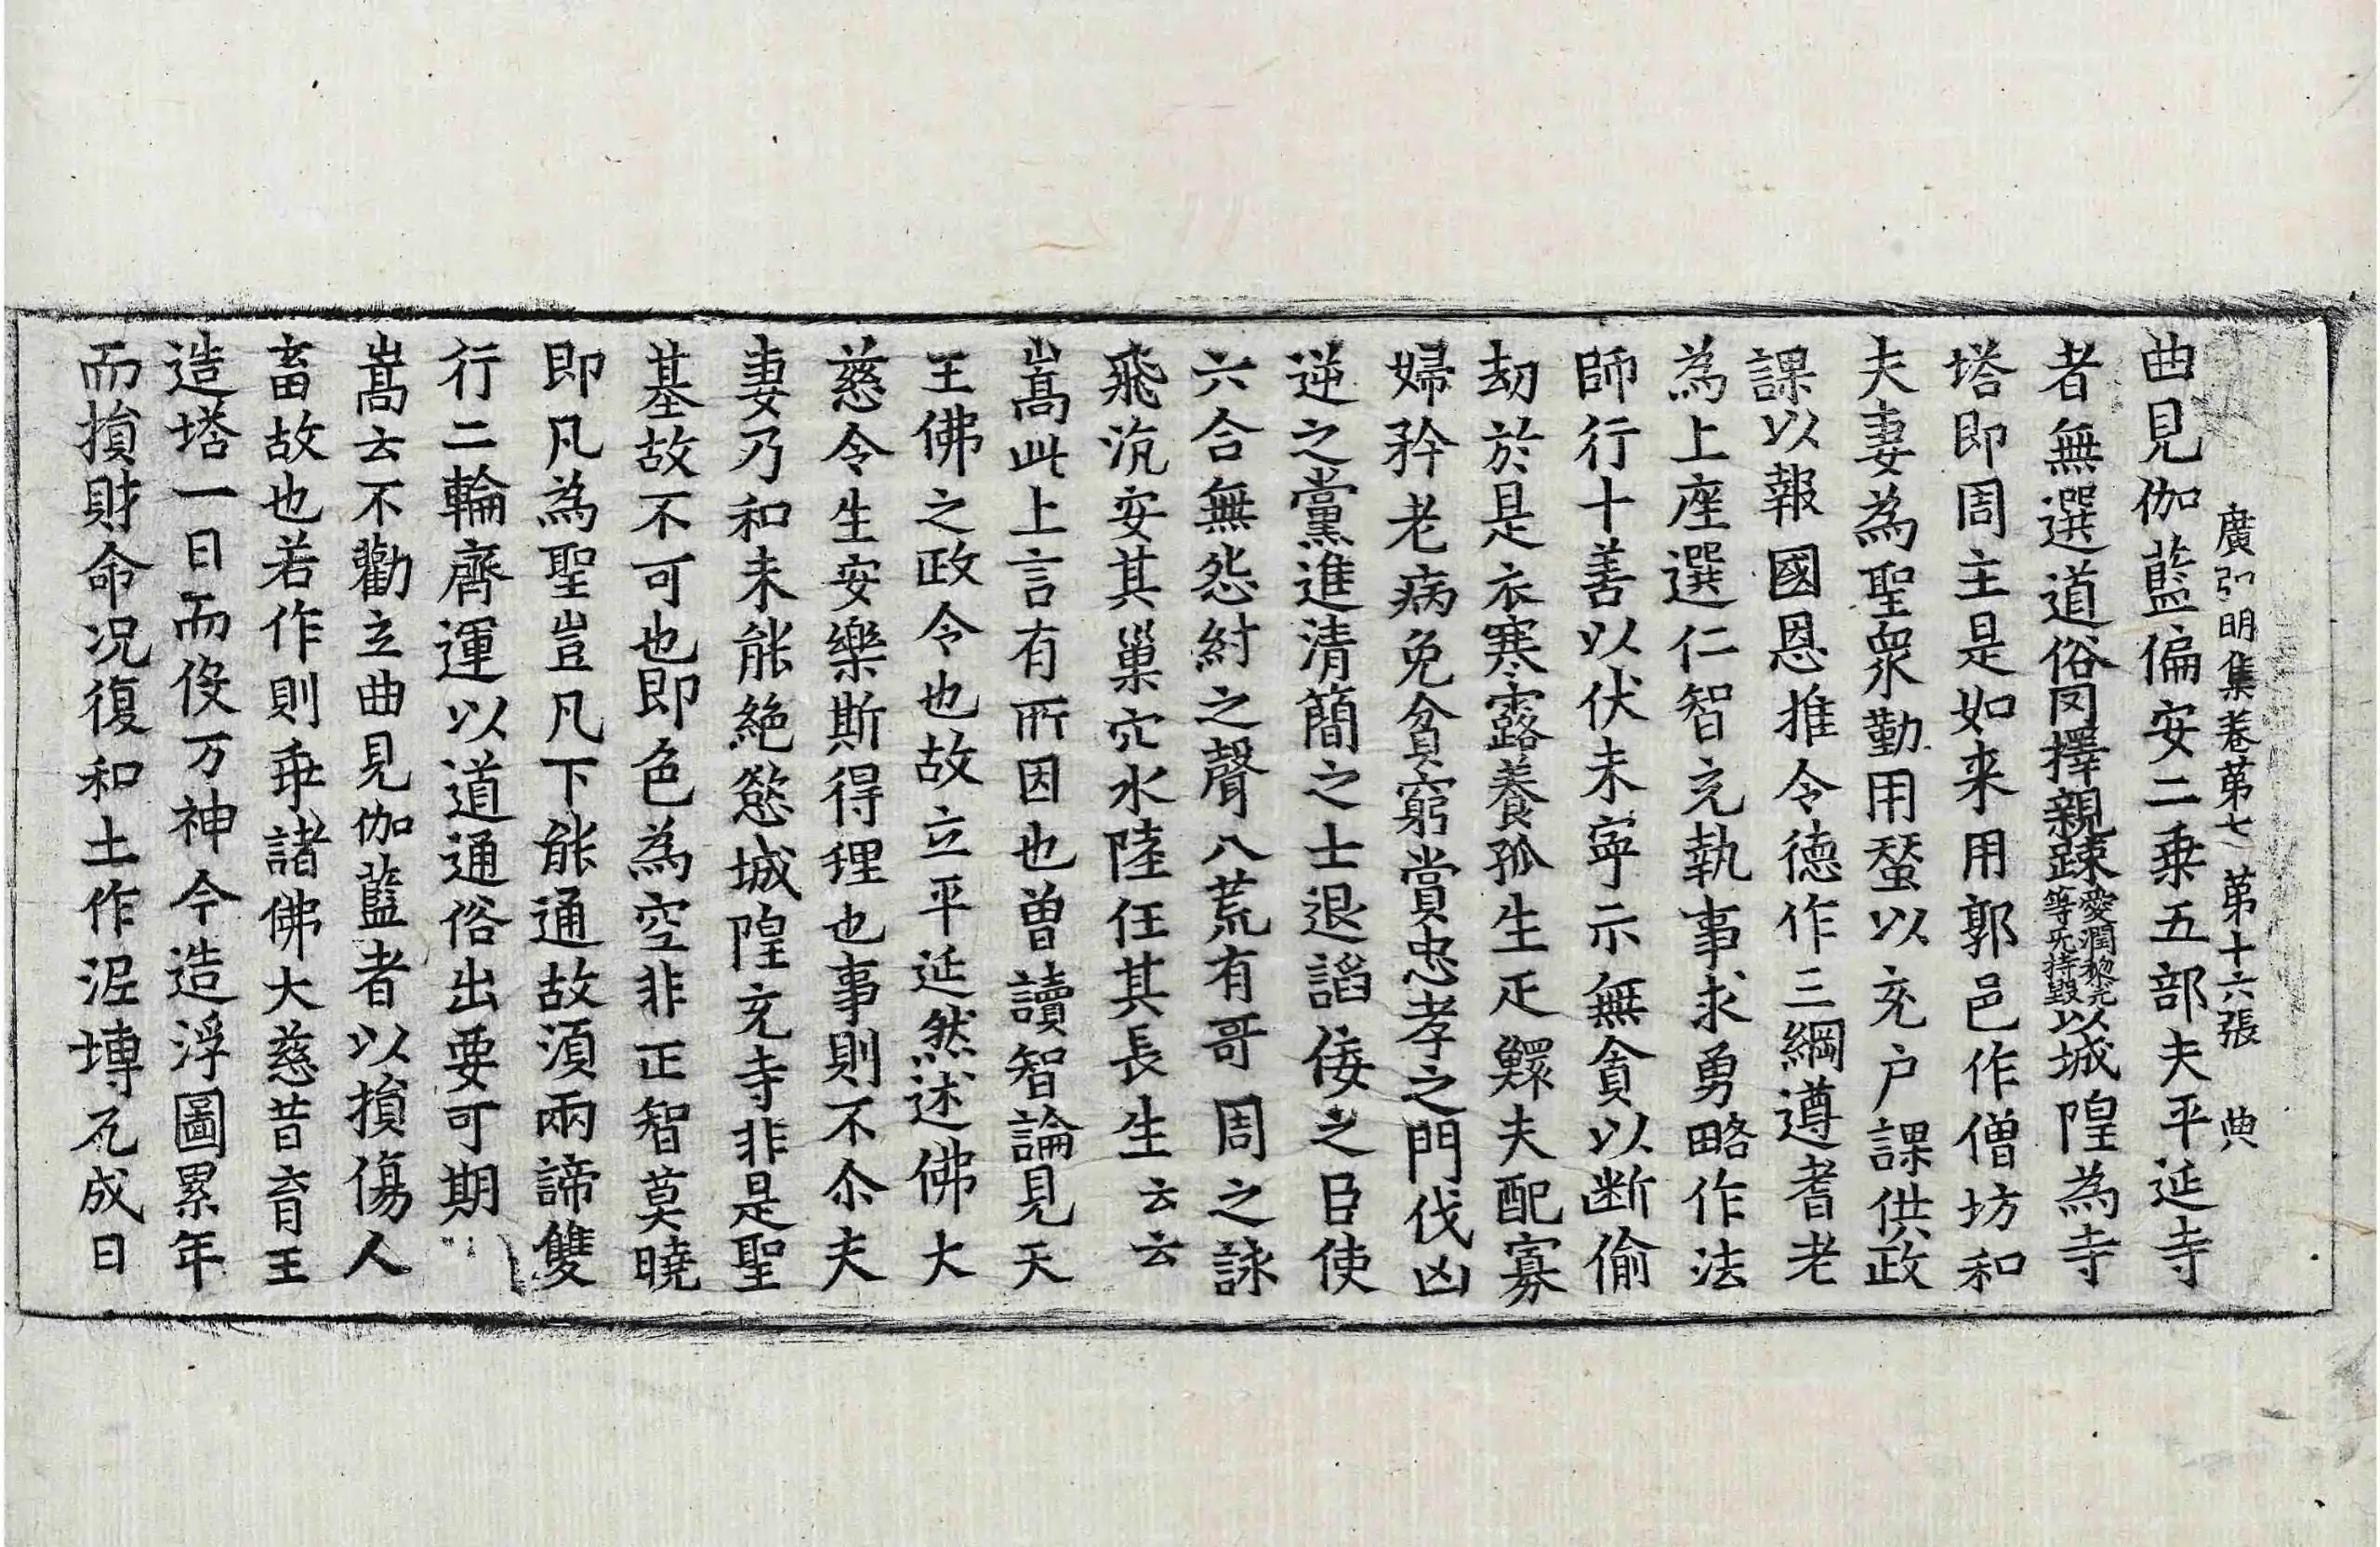 廣弘明集卷苐七 苐十六張 典
曲見伽藍偏安二乗五部夫平延寺
者無選道俗罔擇親踈愛潤黎元等无持毀以城隍為寺
塔即周主是如来用郭邑作僧坊和
夫妻為聖衆勤用蝅以充户課供政
課以報國恩推令德作三綱遵耆老
為上座選仁智充執事求勇略作法
師行十善以伏未寧示無貪以断偷
刼於是衣寒露養孤生疋鰥夫配寡
婦矜老病免貧窮賞忠孝之門伐凶
逆之黨進清簡之士退謟佞之臣使
六合無怨紂之聲八荒有哥周之詠
飛沉安其巢穴水陸任其長生云云
嵩此上言有所因也曽讀智論見天
王佛之政令也故立平延然述佛大
慈令生安樂斯得理也事則不尒夫
妻乃和未能絶慾城隍充寺非是聖
基故不可也即色為空非正智莫曉
即凡為聖豈凡下能通故須兩諦雙
行二輪齊運以道通俗出要可期
嵩云不勸立曲見伽藍者以損傷人
畜故也若作則乖諸佛大慈昔育王
造塔一日而役万神今造浮圖累年
而損財命况復和土作泥塼瓦成日